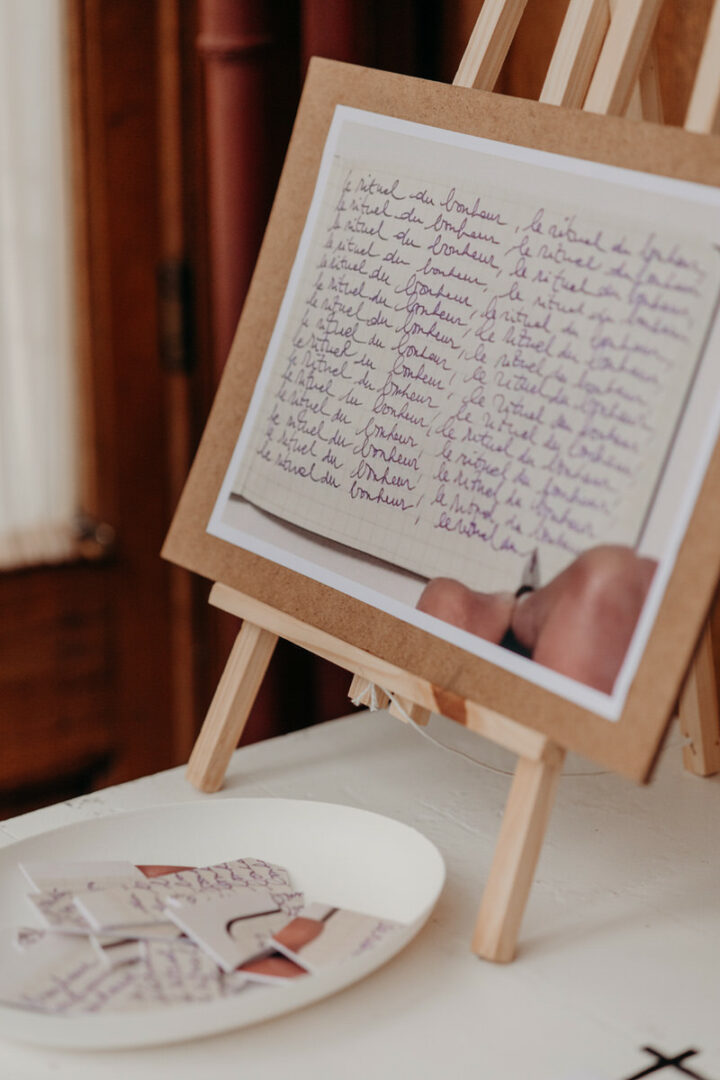 le rituel du bonheur, le rituel du bonheur,
le rituel du bonheur, le rituel du bonheur,
le rituel du bonheur, le rituel du bonheur,
le rituel du bonheur, le rituel du bonheur,
le rituel du bonheur, le rituel du bonheur,
le rituel du bonheur, le rituel du bonheur,
le rituel du bonheur, le rituel du bonheur,
le rituel du bonheur, le rituel du bonheur,
le rituel du bonheur, le rituel du bonheur,
le rituel du bonheur, le rituel du bonheur,
le rituel du bonheur, le rituel du bonheur,
le rituel du bonheur, le rituel du bonheur,
le rituel du bonheur, le rituel du bonheur,
le rituel du bonheur, le rituel du bonheur
le rituel du bonheur, le rituel du